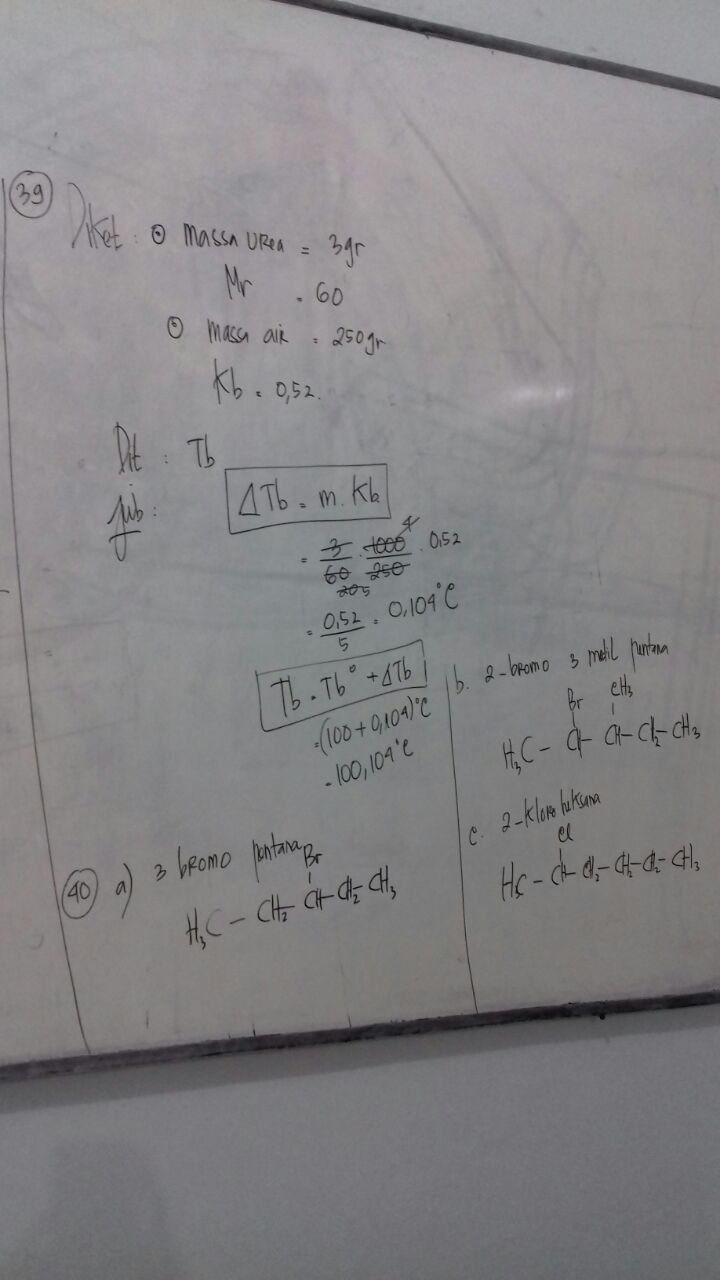 39
Diket : ⊙ Massa Urea = 3gr
Mr = 60
⊙ Massa air = 250gr
Kb = 0,52.
Dit : Tb
Jwb :
ΔTb = m. Kb
= 3/60 . 1000/250 . 0,52
4
20 5
= 0,52/5 = 0,104°C
Tb = Tb° + ΔTb
= (100 + 0,104)°C
= 100,104°C
40 a) 3 bromo pentana
Br
H3C - CH2 - CH - CH2 - CH3
b. 2-bromo 3 metil pentana
Br CH3
H3C - CH - CH - CH2 - CH3
c. 2-kloro heksana
Cl
H3C - CH - CH2 - CH2 - CH2 - CH3